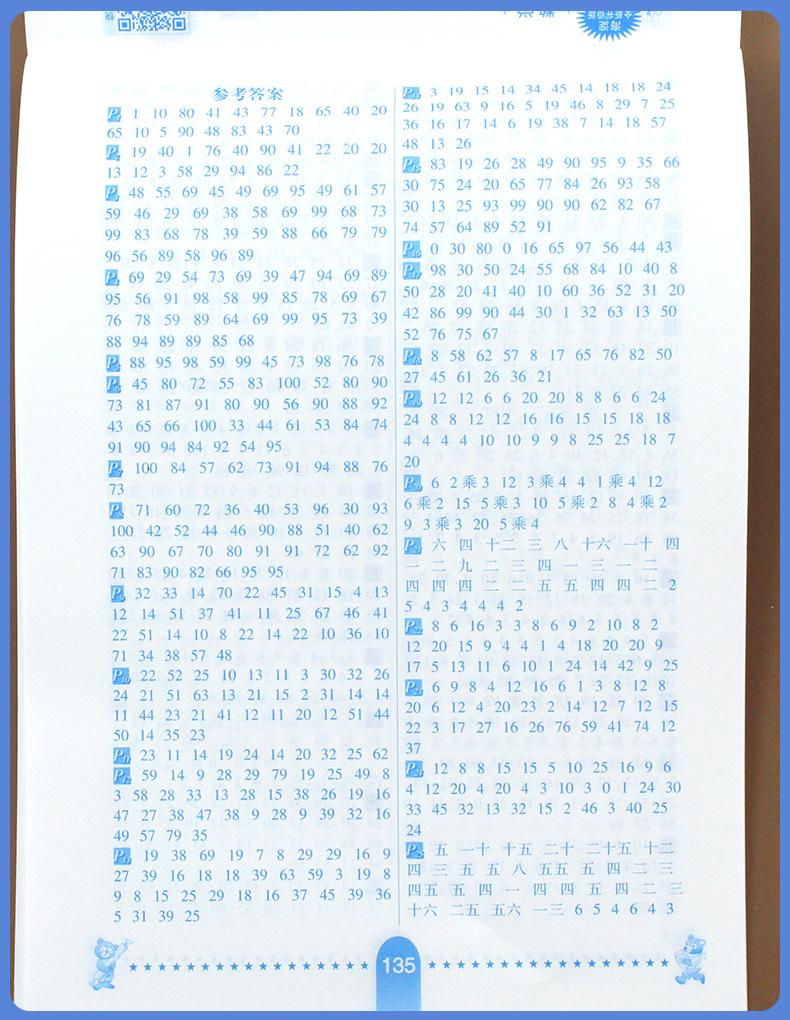 参考答案
P1 1 10 80 41 43 77 18 65 40 20
65 10 5 90 48 83 43 70
P2 19 40 1 76 40 90 41 22 20 20
13 12 3 58 29 94 86 22
P3 48 55 69 45 49 69 95 49 61 57
59 46 29 69 38 58 69 99 68 73
99 83 68 78 39 59 88 66 79 79
96 56 89 58 96 89
P4 69 29 54 73 69 39 47 94 69 89
95 56 91 98 58 99 85 78 69 67
76 78 59 89 64 69 99 95 73 39
88 94 89 89 85 68
P5 88 95 98 59 99 45 73 98 76 78
P6 45 80 72 55 83 100 52 80 90
73 81 87 91 80 90 56 90 88 92
43 65 66 100 33 44 61 53 84 74
91 90 94 84 92 54 95
P7 100 84 57 62 73 91 94 88 76
73
P8 71 60 72 36 40 53 96 30 93
100 42 52 44 46 90 88 51 40 62
63 90 67 70 80 91 91 72 62 92
71 83 90 82 66 95 95
P9 32 33 14 70 22 45 31 15 4 13
12 14 51 37 41 11 25 67 46 41
22 51 14 10 8 22 14 22 10 36 10
71 34 38 57 48
P10 22 52 25 10 13 11 3 30 32 26
24 21 51 63 13 21 15 2 31 14 14
11 44 23 21 41 12 11 20 12 51 44
50 14 35 23
P11 23 11 14 19 24 14 20 32 25 62
P12 59 14 9 28 29 79 19 25 49 8
3 58 28 33 13 28 15 38 26 19 16
47 27 38 47 38 9 28 9 39 32 16
49 57 79 35
P13 19 38 69 19 7 8 29 29 16 9
27 39 16 18 18 39 63 59 3 19 8
9 8 15 25 29 18 16 37 45 39 36
5 31 39 25
P14 3 19 15 14 34 45 14 18 18 24
26 19 63 9 16 5 19 46 8 29 7 25
36 16 17 14 6 19 38 7 14 18 57
48 13 26
P15 83 19 26 28 49 90 95 9 35 66
30 75 24 20 65 77 84 26 93 58
30 13 25 93 99 90 90 62 82 67
74 57 64 89 52 91
P16 0 30 80 0 16 65 97 56 44 43
P17 98 30 50 24 55 68 84 10 40 8
50 28 20 41 40 10 60 36 52 31 20
42 86 99 90 44 30 1 32 63 13 50
52 76 75 67
P18 8 58 62 57 8 17 65 76 82 50
27 45 61 26 36 21
P19 12 12 6 6 20 20 8 8 6 6 24
24 8 8 12 12 16 16 15 15 18 18
4 4 4 4 10 10 9 9 8 25 25 18 7
20
P20 6 2乘3 12 3乘4 4 1乘4 12
6乘2 15 5乘3 10 5乘2 8 4乘2
9 3乘3 20 5乘4
P21 六 四 十二 三 八 十六 一十 四
一 二 九 二 三 四 一 三 一 二
四 四 四 二 二 五 五 四 四 二 2
5 4 3 4 4 4 2
P22 8 6 16 3 3 8 6 9 2 10 8 2
12 20 15 9 4 4 1 4 18 20 20 9
17 5 13 11 6 10 1 24 14 42 9 25
P23 6 9 8 4 12 16 6 1 3 8 12 8
20 6 12 4 20 23 2 14 12 7 12 15
22 3 17 27 16 26 76 59 41 74 12
37
P24 12 8 8 15 15 5 10 25 16 9 6
4 12 20 4 20 4 3 10 3 0 1 24 30
33 45 32 13 32 15 2 46 3 40 25
24
P25 五 一十 十五 二十 二十五 十二
四 三 五 五 八 五五 五 四 二 三
四五 五 四 一 四 四 五 四 二 三
十六 二五 五六 一三 6 5 4 6 4 3
135